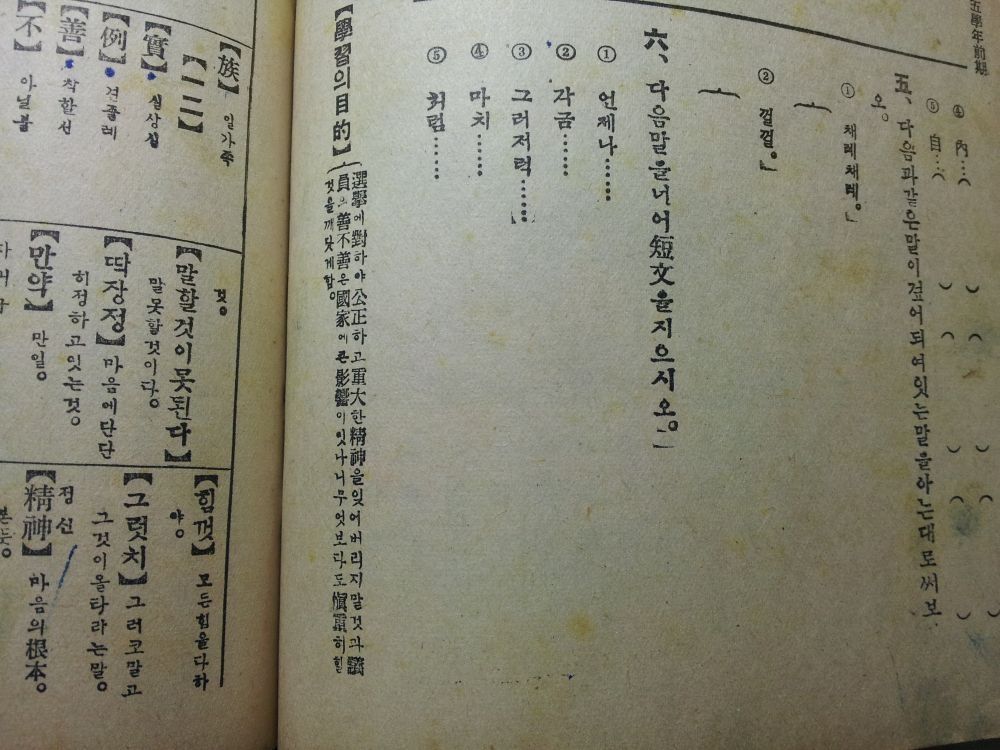 五學年前期
④ 內…( ) ( ) ( )
⑤ 自…( ) ( ) ( )
五、다음과같은말이겊어되여잇는말을아는대로써보
오。
① 채레채레。」
( )
② 껄껄。」
( )
六、다음말을너어短文을지으시오。」
① 언제나……
② 각금……
③ 그러저럭……
④ 마치……
⑤ 처럼……
【學習의目的】
選擧에對하야公正하고重大한精神을잊어버리지말것과議
員의善不善은國家에큰影響이잇나니무엇보다도愼重히할
것을깨닷게함。
【族】 일가족
【一二】
【實】 실상실
【例】 견줄례
【善】 착할선
【不】 아닐불
것。
【말할것이못된다】
말못할것이다。
【딱장정】 마음에단단
히정하고잇는것。
【만약】 만일。
【힘껏】 모든힘을다하
야。
【그럿치】 그러코말고
그것이올타라는말。
정신
【精神】 마음의根本。